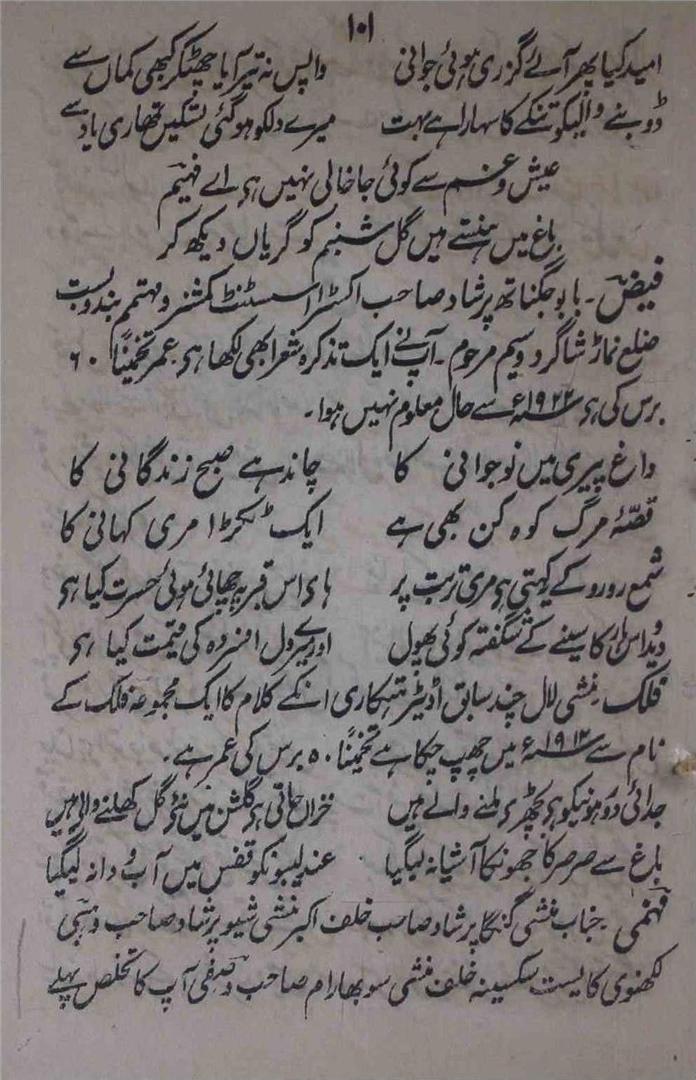 ۱۰۱
امید کیا پھر آئے گزری ہوئی جوانی واپس نہ تیر آیا چھٹکر کبھی کماں سے
ڈوبنے والیکو تنکے کا سہارا ہے بہت میرے دلکو ہوگئی تسکیں تمھاری یاد سے
عیش و غم سے کوئی جا خالی نہیں ہی اے فہیم
باغ میں ہنستے ہیں گل شبنم کو گریاں دیکھ کر
فیض۔ بابو جگناتھ پرشاد صاحب اکسٹرا اسسٹنٹ کمشنر و مہتمم بندوبست
ضلع نماڑ شاگرد وسیم مرحوم۔ آپنے ایک تذکرہ شعرا بھی لکھا ہی عمر تخمیناً ۶۰
برس کی ہی ۱۹۲۲ء سے حال معلوم نہیں ہوا۔
داغ پیری میں نوجوانی کا چاند ہے صبح زندگانی کا
قصّۂ مرگ کوہ کن بھی ہے ایک ٹکڑا مری کہانی کا
شمع رو رو کے یہ کہتی ہی مری تربت پر ہای اس قبر پہ چھائی ہوئی حسرت کیا ہی
کا سینے کے شگفتہ کوئی پھول اور دل افسردہ کی قیمت کیا ہی
فلک۔ منشی لال چند سابق اڈیٹر انکے کلام کا ایک مجموعہ فلک کے
نام سے ۱۹۱۳ء میں چھپ چکا ہے تخمیناً ۵۰ برس کی عمر ہے۔
جدائی دور ہونیکو ہی بچھڑی ملنے والے ہیں خزاں جاتی ہی گلشن میں نئی گل کھلنے والی ہیں
باغ سے صرصر کا جھونکا آشیانہ لیگیا عندلیبونکو قفس میں آب و دانہ لیگیا
فہمی۔ جناب منشی گنگا پرشاد صاحب خلف اکبر منشی شیو پرشاد صاحب وہبی
لکھنوی کایست سکسینہ خلف منشی سوبھا رام صاحب وصفی آپ کا تخلص پہلے